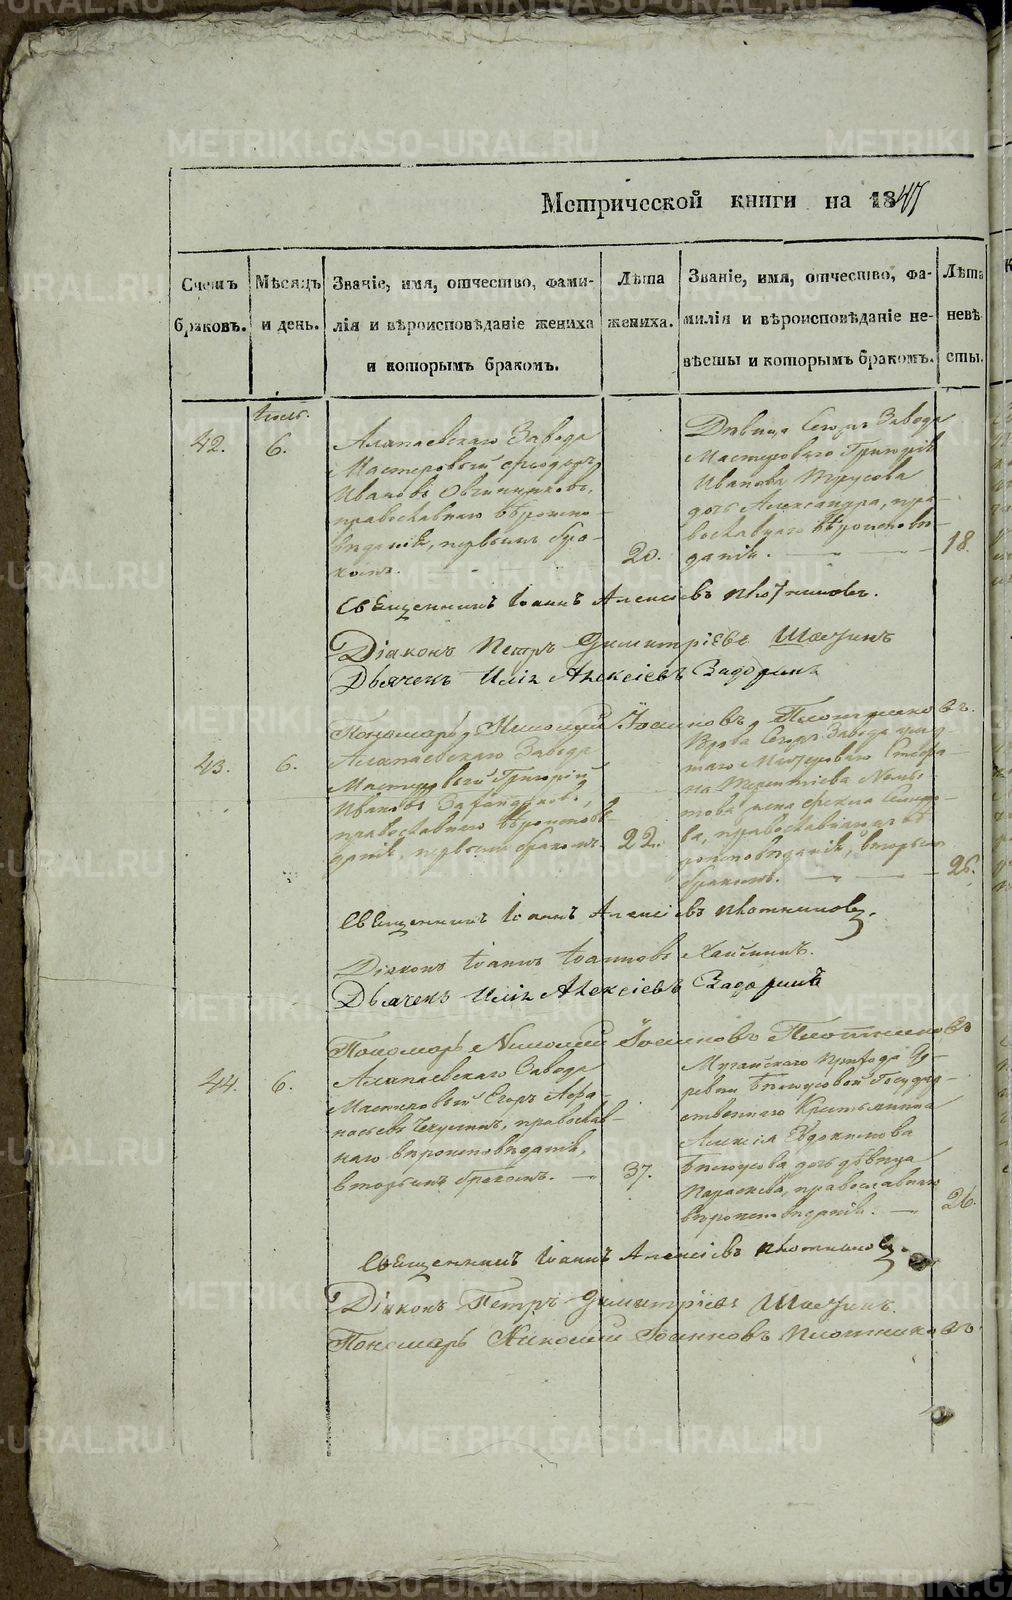 Метрической книги на 1847
Счетъ
браковъ.
Мѣсяцъ
и день.
Званіе, имя, отчество, фами-
лія и вѣроисповѣданіе жениха
и которымъ бракомъ.
Лѣта
жениха.
Званіе, имя, отчество, фа-
милія и вѣроисповѣданіе не-
вѣсты и которымъ бракомъ.
Лѣта
невѣ
сты.
42.
6.
Алапаевскаго Завода
Мастеровый Ѳеодоръ
Ивановъ Овчинниковъ,
православнаго вѣроиспо-
вѣданія, первымъ бра-
комъ.
20.
Дѣвица Завода
Мастероваго Григорія
Иванова Трусова
дочь Александра, пра-
вославнаго вѣроисповѣ-
данія.
18.
Священникъ Іоаннъ Алексіевъ Плотниковъ.
Діаконъ Петръ Димитріевъ
Дьячекъ Илія Алексіевъ Задоринъ
Пономарь Николай Іоанновъ Плотниковъ.
43.
6.
Алапаевскаго Завода
Мастеровый Григорій
Ивановъ
православнаго вѣроисповѣ-
данія, первымъ бракомъ.
22.
Вдова Завода
Мастероваго
Терентіева
жена
православнаго вѣ-
роисповѣданія, вторымъ
бракомъ.
26.
Священникъ Іоаннъ Алексіевъ Плотниковъ.
Діаконъ Іоаннъ Іоанновъ
Дьячекъ Илія Алексіевъ Задоринъ
Пономарь Николай Іоанновъ Плотниковъ
44.
6.
Алапаевскаго Завода
Мастеровый Егоръ Аѳа-
насьевъ православ-
наго вѣроисповѣданія,
вторымъ бракомъ.
37.
Мугайскаго Прихода де-
ревни Бѣлоусовой Государ-
ственнаго Крестьянина
Алексія Евдокимова
Бѣлоусова дочь дѣвица
Параскева, православнаго
вѣроисповѣданія.
26.
Священникъ Іоаннъ Алексіевъ Плотниковъ.
Діаконъ Петръ Димитріевъ
Пономарь Николай Іоанновъ Плотниковъ.
METRIKI.GASO-URAL.RU